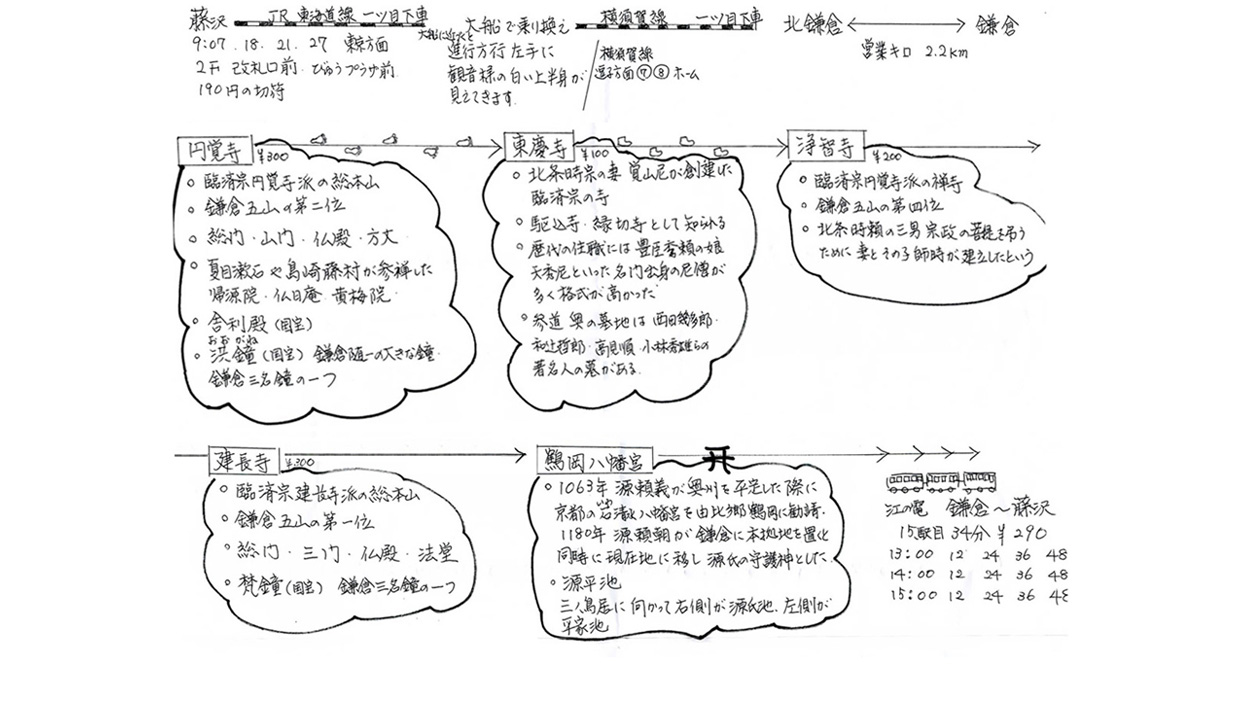 藤沢 JR 東海道線 一ツ目下車 大船で乗り換え 横須賀線 一ツ目下車 北鎌倉 ←→ 鎌倉
営業キロ 2.2km
9:07 . 18 . 21 . 27 東京方面
2F 改札口前 . びゅうプラザ前.
190円の切符
大船に近だくと
進行方行 左手に
観音様の白い上半身が
見えてきます.
横須賀線
逗子方面 ⑦ ⑧ ホーム
円覚寺 ¥300
○ 臨済宗円覚寺派の総本山
○ 鎌倉五山の第二位
○ 総門・山門・仏殿・方丈
○ 夏目漱石や島崎藤村が参禅した
帰源院・仏日庵 黄梅院・
○ 舎利殿 (国宝)
おおがね
○ 洪鐘 (国宝) 鎌倉随一の大きな鐘・
鎌倉三名鐘の一つ
東慶寺 ¥100
○ 北条時宗の妻 覚山尼が創建した
臨済宗の寺
○ 駆込寺・縁切寺として知られる
○ 歴代の住職には 豊臣秀頼の娘
天秀尼といった名門出身の尼僧が
多く格式が高かった
○ 参道奥の墓地は 西田幾多郎・
和辻哲郎・高見順・小林秀雄らの
著名人の墓がある.
浄智寺 ¥200
○ 臨済宗円覚寺派の禅寺
○ 鎌倉五山の第四位
○ 北条時頼の三男 宗政の菩提を弔う
ために 妻とその子師時が建立したという
建長寺 ¥300
○ 臨済宗建長寺派の総本山
○ 鎌倉五山の第一位
○ 総門・三門・仏殿・法堂
○ 梵鐘 (国宝) 鎌倉三名鐘の一つ
鶴岡八幡宮
○ 1063年 源頼義が奥州を平定した際に
いわ
京都の石清水八幡宮を由比郷鶴岡に勧請.
1180年 源頼朝が鎌倉に本拠地を置化
同時に現在地に移し 源氏の守護神とした
○ 源平池
三ノ鳥居に向かって右側が源氏池、左側が
平家池
江の電 鎌倉〜藤沢
15駅目 34分 ¥290
13:00 12 24 36 48
14:00 12 24 36 48
15:00 12 24 36 48